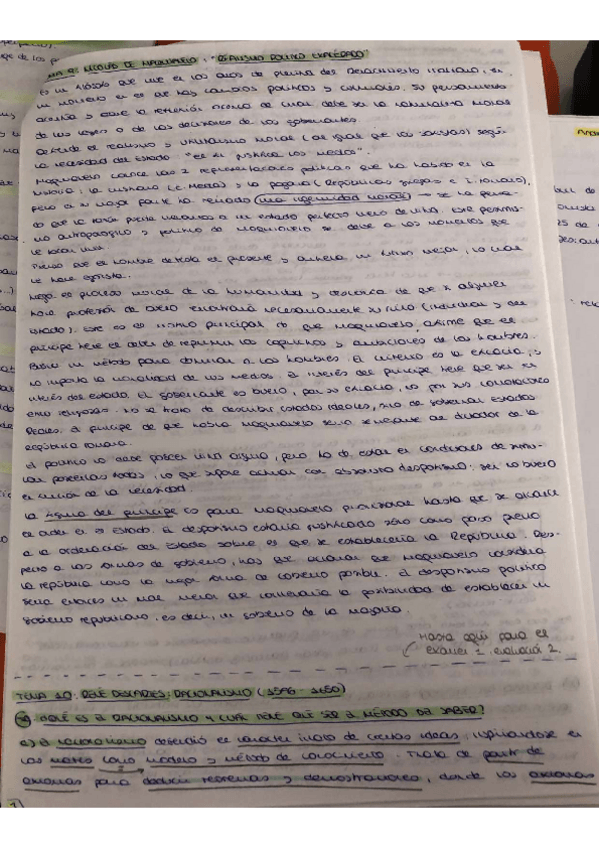 MA 9: NICOLÁS DE MAQUIAVELO: "REALISMO POLÍTICO EXAGERADO"
Es un filósofo que vive en los años de plenitud del Renacimiento Italiano, en
un momento en el que hay cambios políticos y culturales. Su pensamiento
y sobre la reflexión acerca de cual debe ser la naturaleza moral
de las leyes o de las decisiones de los gobernantes.
Defiende el realismo y utilitarismo moral (al igual que los sofistas) según
la necesidad del Estado "el fin justifica los medios".
Maquiavelo conoce las 2 representaciones políticas que ha habido en la
historia: la cristiana (E. Media) y la pagana (Repúblicas griegas e I. romano),
pero en su mayor parte ha reinado una ingenuidad moral → se ha pensa-
do que la razón puede llevarnos a un estado perfecto lleno de vida. Este pesimis-
mo antropológico y político de Maquiavelo se debe a los momentos que
le tocan vivir.
Piensa que el hombre detesta el presente y anhela un futuro mejor, lo cual
le hace egoísta.
Niega el proceso moral de la humanidad y destierra de que si alguien
hace profesión de bueno encontrará necesariamente su ruina (individual y del
Estado). Este es el motivo principal por que Maquiavelo, afirme que el
príncipe tiene el deber de reprimir los caprichos y ambiciones de los hombres.
un método para dominar a los hombres. El criterio es la eficacia, y
no importa la moralidad de los medios. El interés del príncipe tiene que ser el
interés del estado. El gobernante es bueno, por su eficacia, no por sus convicciones
ético religiosas. No se trata de descubrir estados ideales, sino de gobernar estados
reales. El príncipe de que habla Maquiavelo sería semejante al dictador de la
República romana.
El político no debe poseer virtud alguna, pero ha de estar en condiciones de simu-
lar poseerlas todas, lo que supone actuar con absoluto despotismo: ser no bueno
en función de la necesidad.
La figura del príncipe es para Maquiavelo provisional hasta que se alcance
el orden en el Estado. El despotismo estaría justificado sólo como paso previo
a la ordenación del Estado sobre el que se establecería la República. Res-
pecto a las formas de gobierno, hay que aclarar que Maquiavelo considera
la república como la mejor forma de gobierno posible. El despotismo político
sería entonces un mal menor que conllevaría la posibilidad de establecer un
gobierno republicano, es decir, un gobierno de la mayoría.
Hasta aquí para el
examen 2. evaluación 2.
TEMA 10: RENÉ DESCARTES: RACIONALISMO (1596 - 1650)
¿QUÉ ES EL RACIONALISMO Y CUÁL TIENE QUE SER EL MÉTODO DEL SABER?
a) El racionalismo defendió el carácter innato de ciertas ideas, inspirándose en
las mates como modelo y método de conocimiento. Trata de partir de
axiomas para deducir teoremas y demostraciones, donde los axiomas